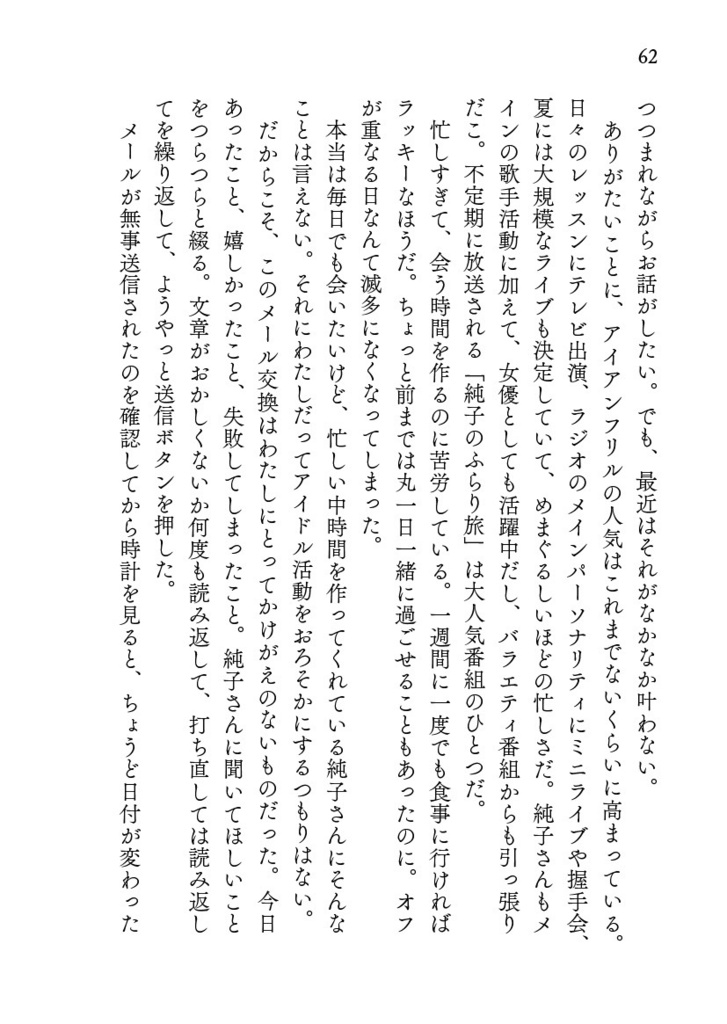 62
つつまれながらお話がしたい。でも、最近はそれがなかなか叶わない。
ありがたいことに、アイアンフリルの人気はこれまでないくらいに高まっている。
日々のレッスンにテレビ出演、ラジオのメインパーソナリティにミニライブや握手会、
夏には大規模なライブも決定していて、めまぐるしいほどの忙しさだ。純子さんもメ
インの歌手活動に加えて、女優としても活躍中だし、バラエティ番組からも引っ張り
だこ。不定期に放送される「純子のふらり旅」は大人気番組のひとつだ。
忙しすぎて、会う時間を作るのに苦労している。一週間に一度でも食事に行ければ
ラッキーなほうだ。ちょっと前までは丸一日一緒に過ごせることもあったのに。オフ
が重なる日なんて滅多になくなってしまった。
本当は毎日でも会いたいけど、忙しい中時間を作ってくれている純子さんにそんな
ことは言えない。それにわたしだってアイドル活動をおろそかにするつもりはない。
だからこそ、このメール交換はわたしにとってかけがえのないものだった。今日
あったこと、嬉しかったこと、失敗してしまったこと。純子さんに聞いてほしいこと
をつらつらと綴る。文章がおかしくないか何度も読み返して、打ち直しては読み返し
てを繰り返して、ようやっと送信ボタンを押した。
メールが無事送信されたのを確認してから時計を見ると、ちょうど日付が変わった